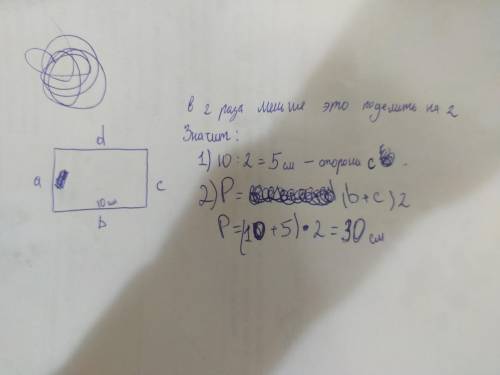 в 2 раза меньше это поделить на 2
Значит:
1) 10 : 2 = 5 см – сторона c .
2) P = (b + c) 2
P = (10 + 5) • 2 = 30 см
d
a
c
10 см
b